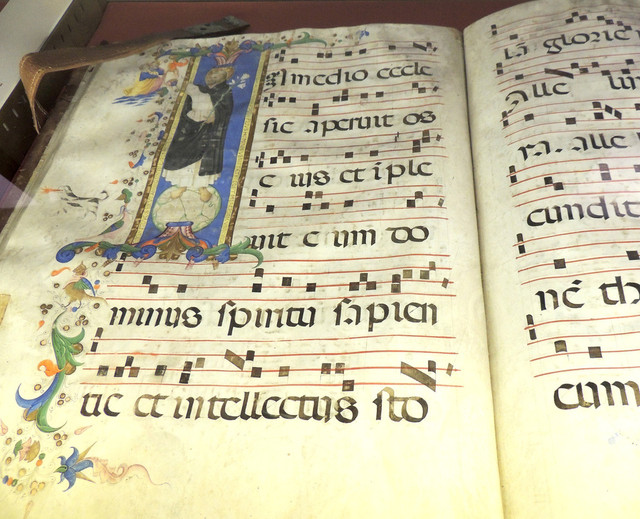 N medio eccle
sie aperuit os
e ius et iple
uit e um do
minus spiritu sapien
tie et intellectus sto
la glorie
alle lu
ra. alle
cundit
ne th
cum